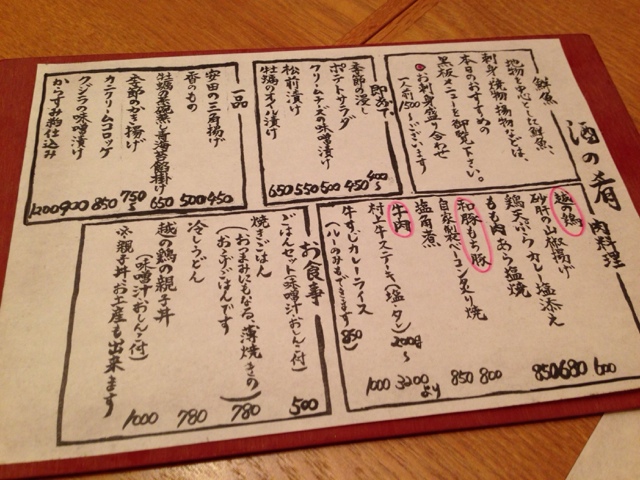 酒の肴
鮮魚
地物を中心とした鮮魚、
刺身、焼物、揚物などは、
本日のおすすめの
黒板メニューを御覧下さい。
お刺身盛り合わせ
一人前1500〜ございます
即あて
季節の浸し 400〜
ポテトサラダ 450
クリームチーズの味噌漬け 500
松前漬け 550
牡蠣のオイル漬け 650
一品
安田の三角揚げ 450
香のもの 500
牡蠣の 青海苔餡掛け 650
季節のかき揚げ 750〜
カニクリームコロッケ 850
クジラの味噌漬け 900
からすみ粕仕込み 1200
肉料理
越の鶏
砂肝の山椒揚げ 600
鶏天ぷらカレー塩添え 680
もも肉あら塩焼 850
和豚もち豚
自家製ベーコン炙り焼 800
塩角煮 850
牛肉
村上牛ステーキ(塩・タレ) 200g〜 3200より
牛すじカレーライス 1000
(ルーのみもできます 850)
お食事
ごはんセット(味噌汁・おしんこ付) 500
焼きごはん 780
(おつまみにもなる、薄焼きの
おこげごはんです)
冷しうどん 780
越の鶏の親子丼 1000
(味噌汁・おしんこ付)
※親子丼お土産も出来ます